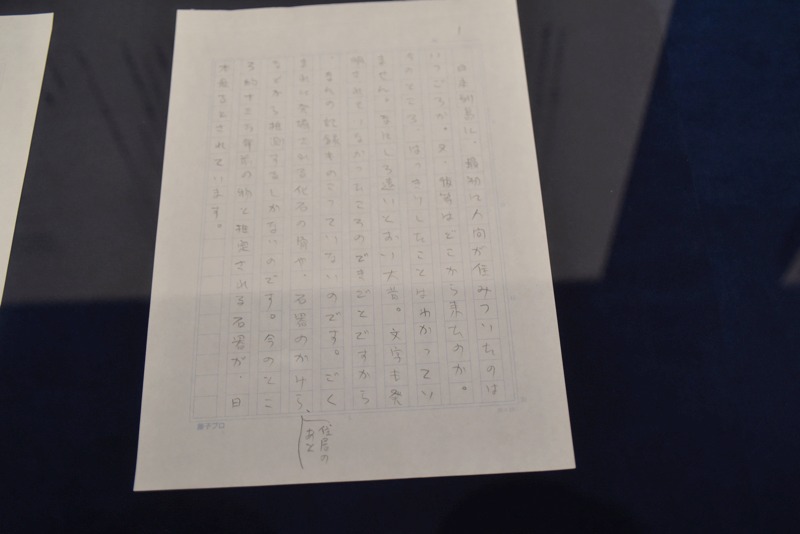 1
日本列島に、最初に人間が住みついたのは
いつごろか。又、彼等はどこから来たのか。
今のところ、はっきりしたことはわかってい
ません。なにしろ遠いとおい大昔。文字も発
明されていなかったころのできごとですから
なんの記録ものこっていないのです。ごく
まれに発掘される化石の骨や、石器のかけら、
住居の
あと
などから推測するしかないのです。今のとこ
ろ約 年前の物と推定される石器が、日
本最古とされています。
藤子プロ